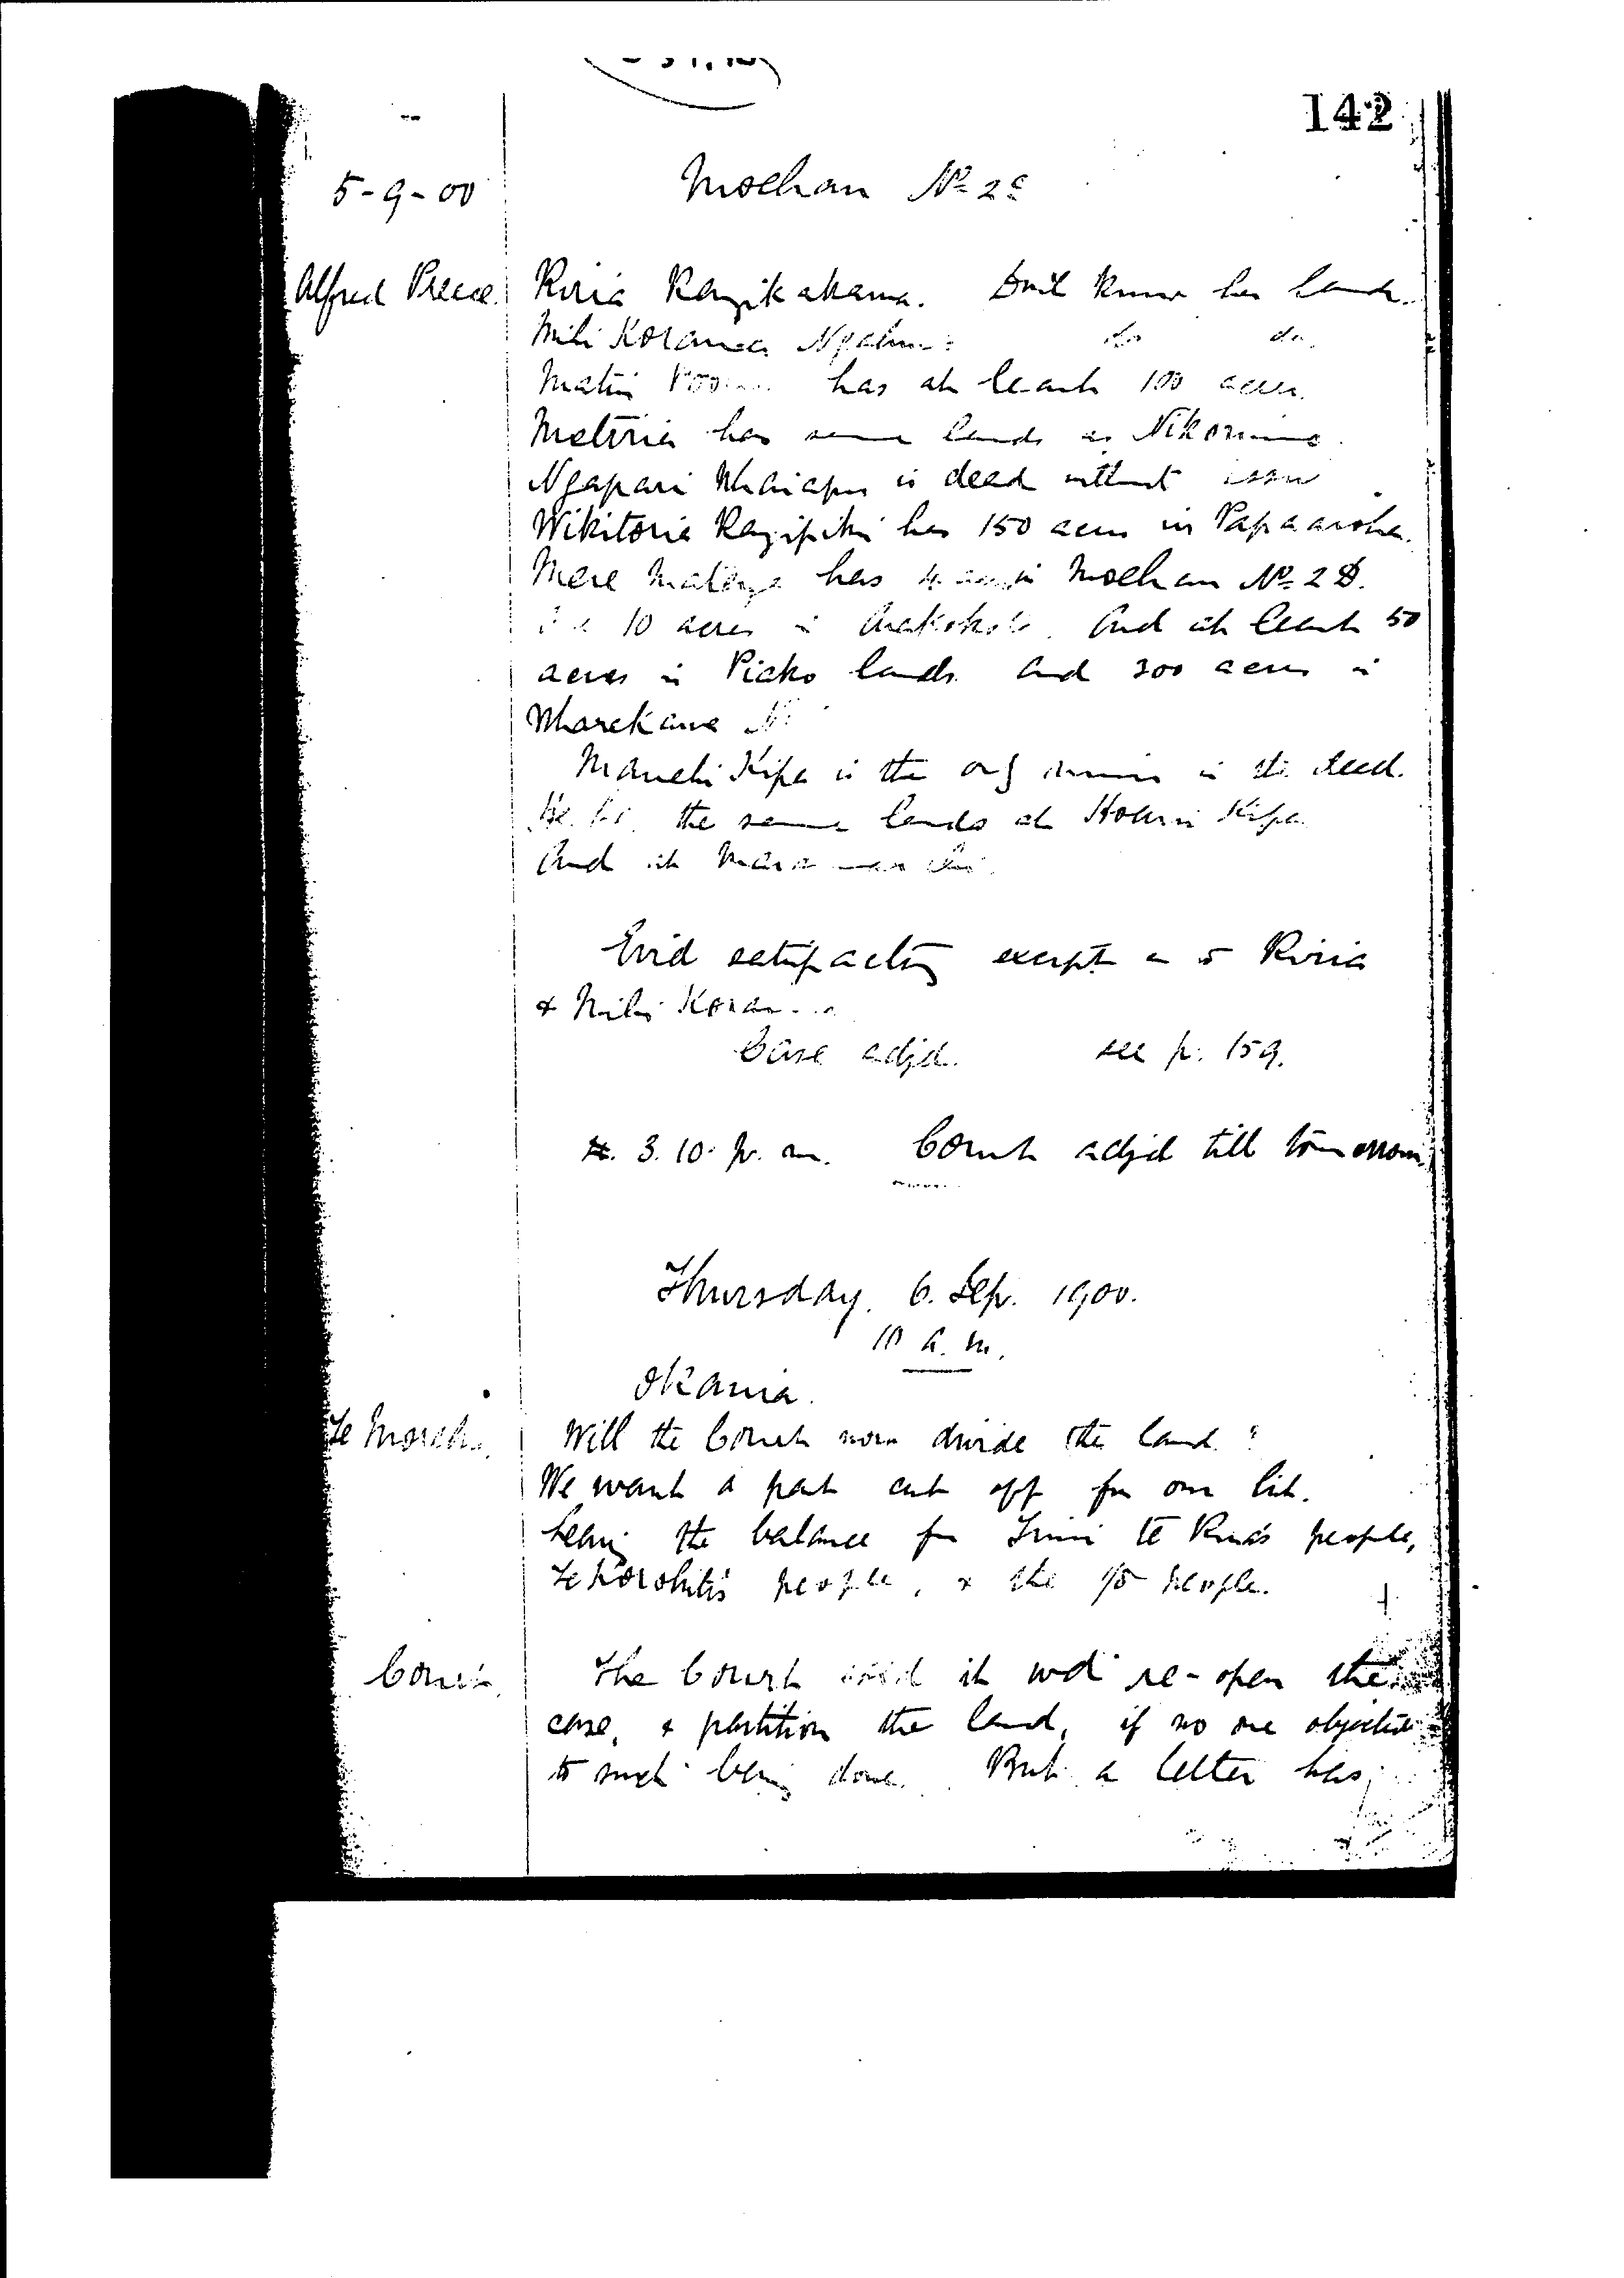 142
5-9-00
Moehau No 2c
Alfred Preece. Riria Rangikakama. Don't know her lands.
Mihi Koranga do do.
Matiu has at least 100 acres.
Metiria has same lands as Nikorima.
Ngapari Wharapu is dead without issue
Wikitoria Rangipiki has 150 acres in Papaaroha.
Mere Matenga has 4 acres in Moehau No 2 D.
10 acres in And at least 50
acres in Piako lands. And 300 acres in
Wharekawa No
Manehi Kipa is the only minor in the deed.
He has the same lands as Hohua Kipa
And at
Evid satisfactory except as to Riria
& Mihi
Case adjd. see p. 159.
3.10. p.m. Court adjd till tomorrow
Thursday. 6. Sep. 1900.
10 a.m.
Okauia.
Will the Court now divide the land?
We want a part cut off for our list.
leaving the balance for Timi te Rua's people,
people, & the people.
Court. The Court said it wd re-open the
case, & partition the land, if no one objected
to such being done. But a letter has